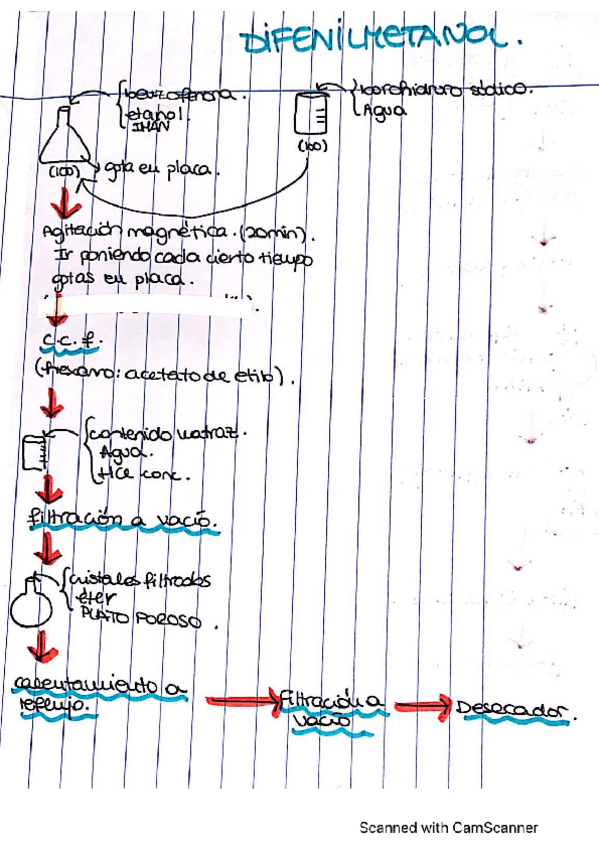 DIFENILMETANOL.
benzofenona.
etanol.
IMAN
borohidruro sódico.
Agua
(100)
(100)
gota en placa.
Agitación magnética. (20min).
Ir poniendo cada cierto tiempo
gotas en placa.
c.c.f.
(hexano: acetato de etilo).
contenido matraz.
Agua.
HCl conc.
filtración a vacío.
cristales filtrados
éter
PLATO POROSO.
calentamiento a
reflujo.
Filtración a
vacío
Desecador.
Scanned with CamScanner